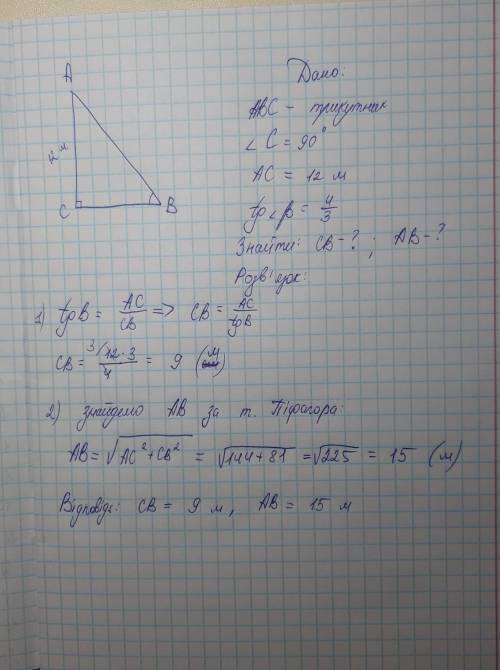 Дано:
A
ABC - трикутник
∠ C = 90°
12 м
AC = 12 м
C
B
tg∠β = 4/3
Знайти: CB - ? ; AB - ?
Розв'язок:
1) tgB = AC/CB => CB = AC/tgB
CB = 3/12·3/4 = 9 (м)
2) знайдемо AB за т. Піфагора:
AB = √AC²+CB² = √144+81 = √225 = 15 (м)
Відповідь: CB = 9 м, AB = 15 м